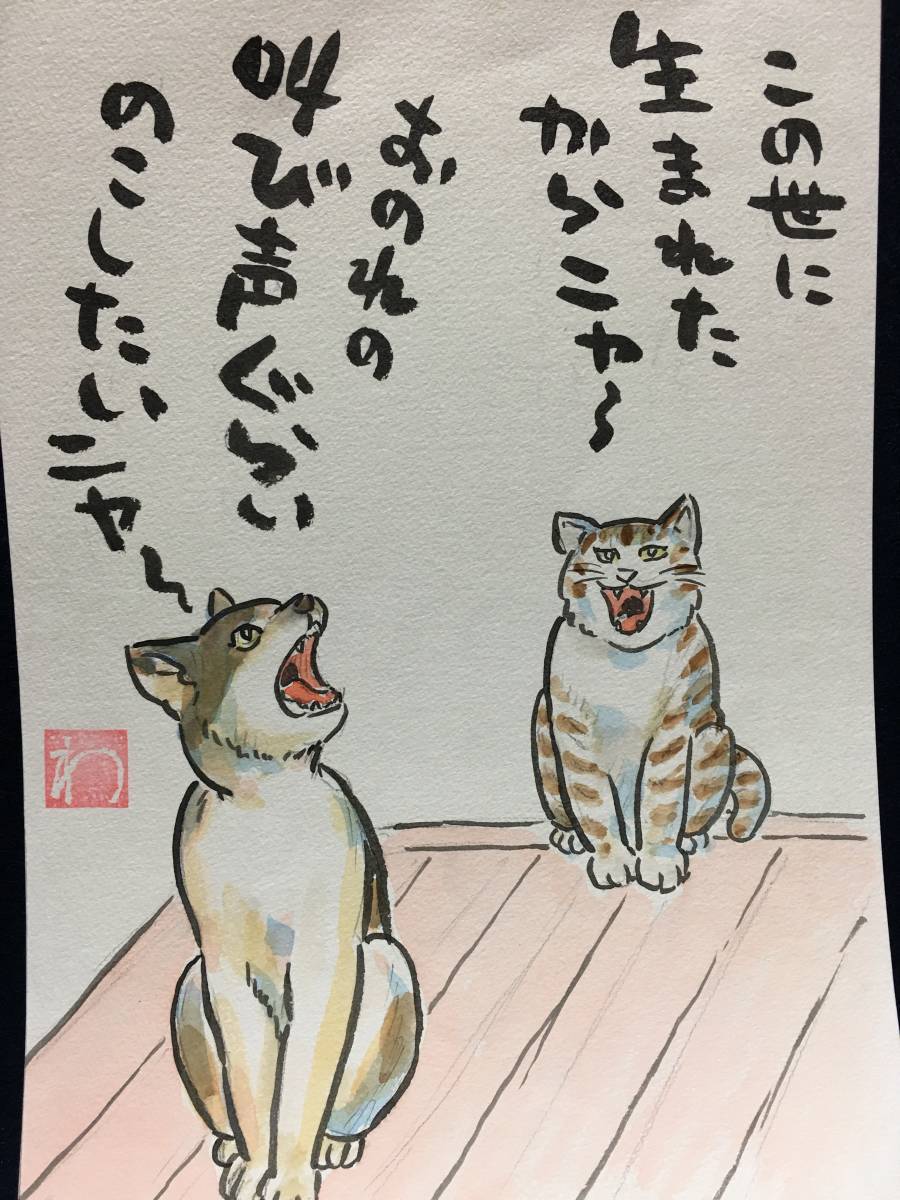 この世に
生まれた
からニャ〜
おのれの
叫び声ぐらい
のこしたいニャ〜
わ